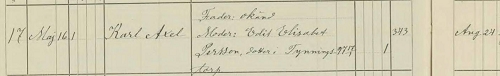 Fader: okänd
17 Maj 16. 1 Karl Axel Moder: Edit Elisabet 343 Aug. 24
Persson, dotter i Tynnings- 977. 1
torp